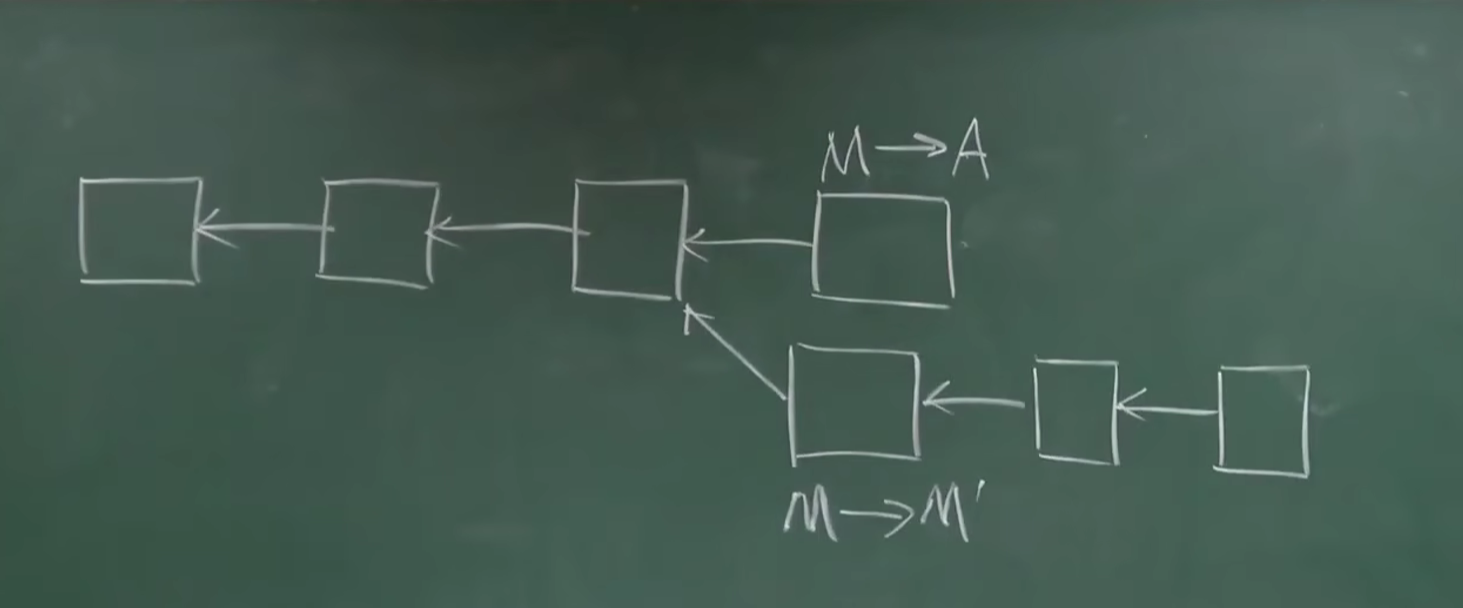 M → A
M → M'